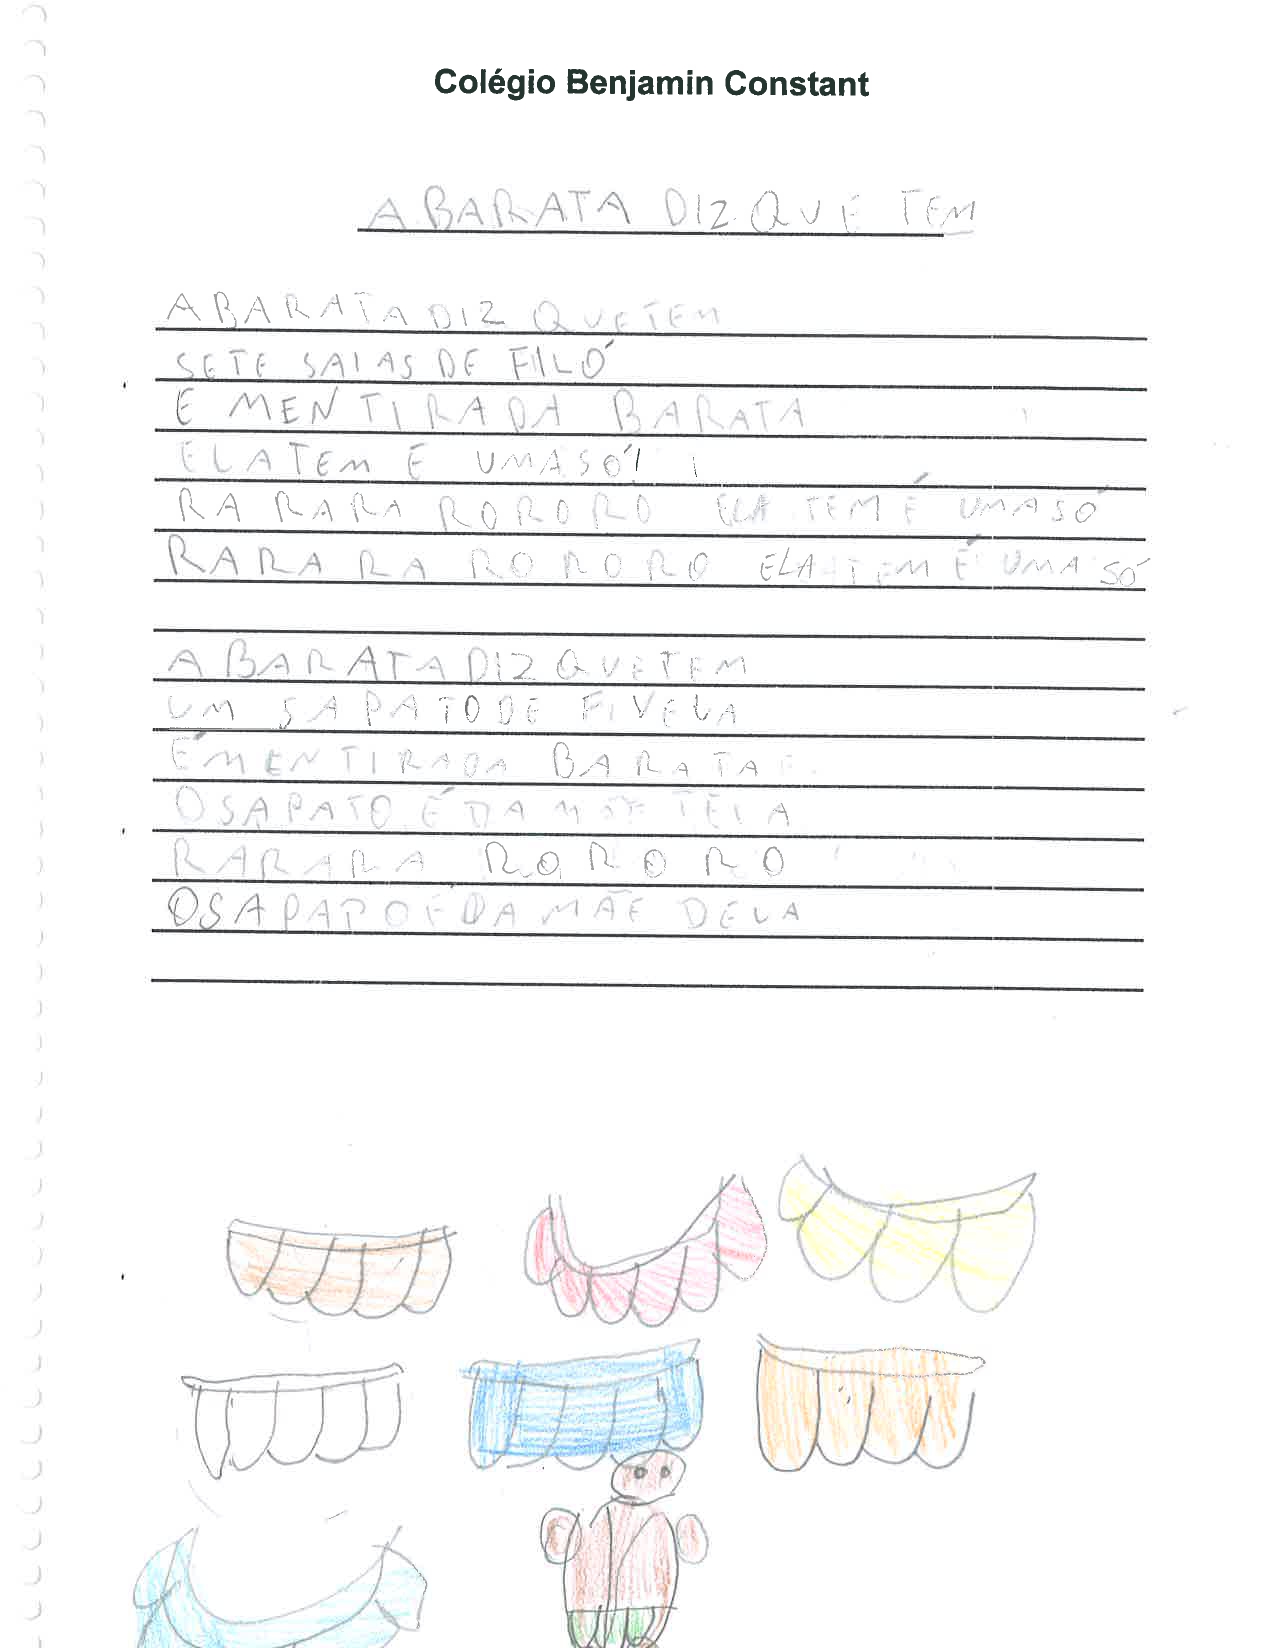 Colégio Benjamin Constant
A BARATA DIZ QUE TEM
A BARATA DIZ QUE TEM
SETE SAIAS DE FILÓ
E MENTIRA DA BARATA
ELA TEM E UMA SÓ
RA RA RA RO RO RO ELA TEM É UMA SÓ
RA RA RA RO RO RO ELA TEM É UMA SÓ
A BARATA DIZ QUE TEM
UM SAPATO DE FIVELA
É MENTIRA DA BARATA
O SAPATO É DA
RA RA RA RO RO RO
O SAPATO É DA MÃE DELA